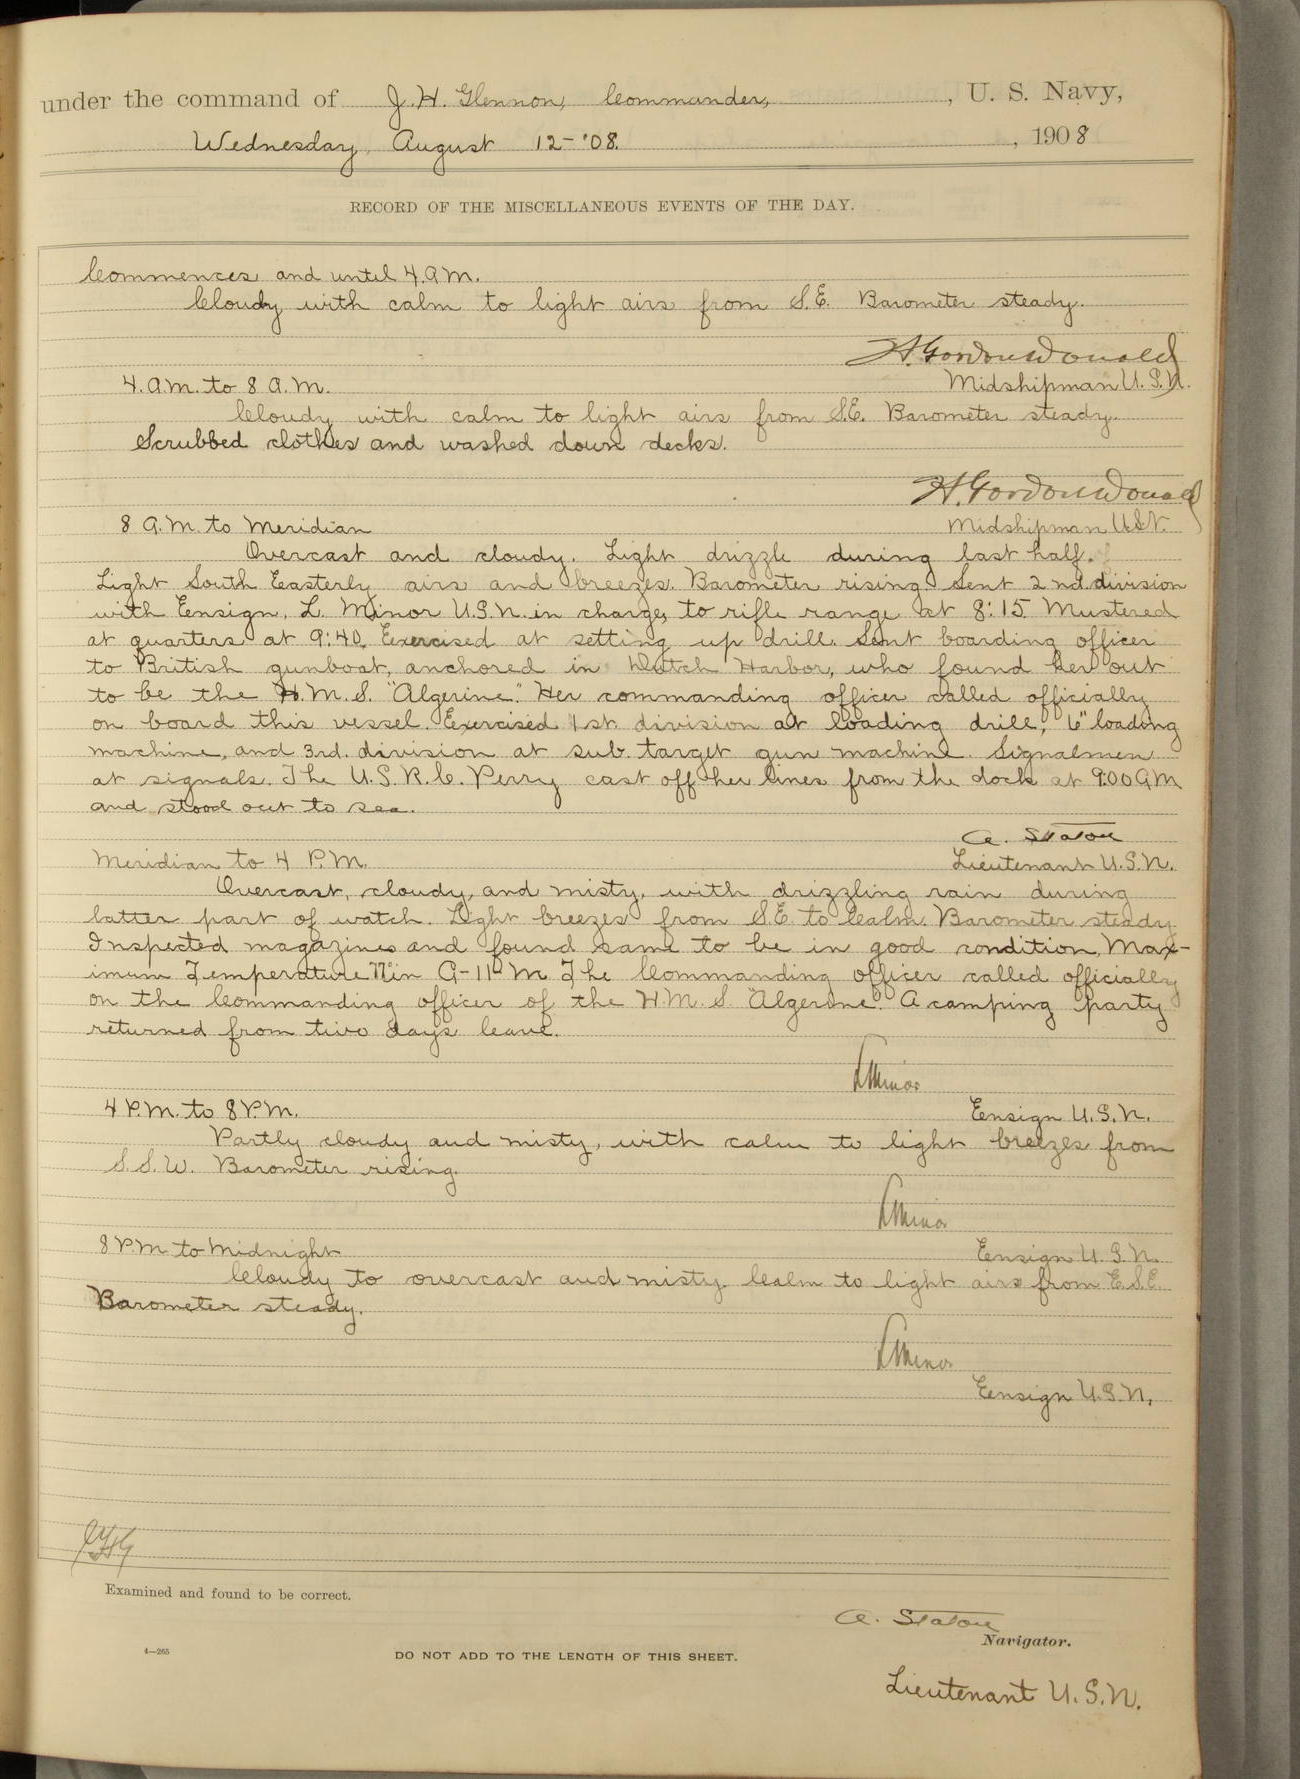 under the command of J. H. Glennon, Commander, , U. S. Navy,
Wednesday, August 12-'08. , 1908
RECORD OF THE MISCELLANEOUS EVENTS OF THE DAY.
Commences and until 4 A.M.
Cloudy with calm to light airs from S.E. Barometer steady.
H. Gordon Donald
4 A.M. to 8 A.M.
Midshipman U.S.N.
Cloudy with calm to light airs from S.E. Barometer steady.
Scrubbed clothes and washed down decks.
H. Gordon Donald
8 A.M. to Meridian
Midshipman U.S.N.
Overcast and cloudy. Light drizzle during last half.
Light South Easterly airs and breezes. Barometer rising. Sent 2nd division
with Ensign, L. Minor U.S.N. in charge, to rifle range at 8:15. Mustered
at quarters at 9:40. Exercised at setting up drill. Sent boarding officer
to British gunboat, anchored in Dutch Harbor, who found her out
to be the H.M.S. "Algerine". Her commanding officer called officially
on board this vessel. Exercised 1st division at loading drill, 6" loading
machine, and 3rd. division at sub. target gun machine. Signalmen
at signals. The U.S.R.C. Perry cast off her lines from the dock at 9:00 A.M
and stood out to sea.
A. Staton
Meridian to 4 P.M.
Lieutenant U.S.N.
Overcast, cloudy, and misty, with drizzling rain during
latter part of watch. Light breezes from S.E. to Calm. Barometer steady.
Inspected magazines and found same to be in good condition, Max-
imum Temperature 77° in A-110 M. The Commanding officer called officially
on the Commanding officer of the H.M.S. "Algerine". A camping party
returned from two days leave.
L Minor
4 P.M. to 8 P.M.
Ensign U.S.N.
Partly cloudy and misty, with calm to light breezes from
S.S.W. Barometer rising.
L Minor
8 P.M. to Midnight
Ensign U.S.N.
Cloudy to overcast and misty. Calm to light airs from E.S.E.
Barometer steady.
L Minor
Ensign U.S.N.
Examined and found to be correct.
A. Staton
Navigator.
4—265
DO NOT ADD TO THE LENGTH OF THIS SHEET.
Lieutenant U.S.N.